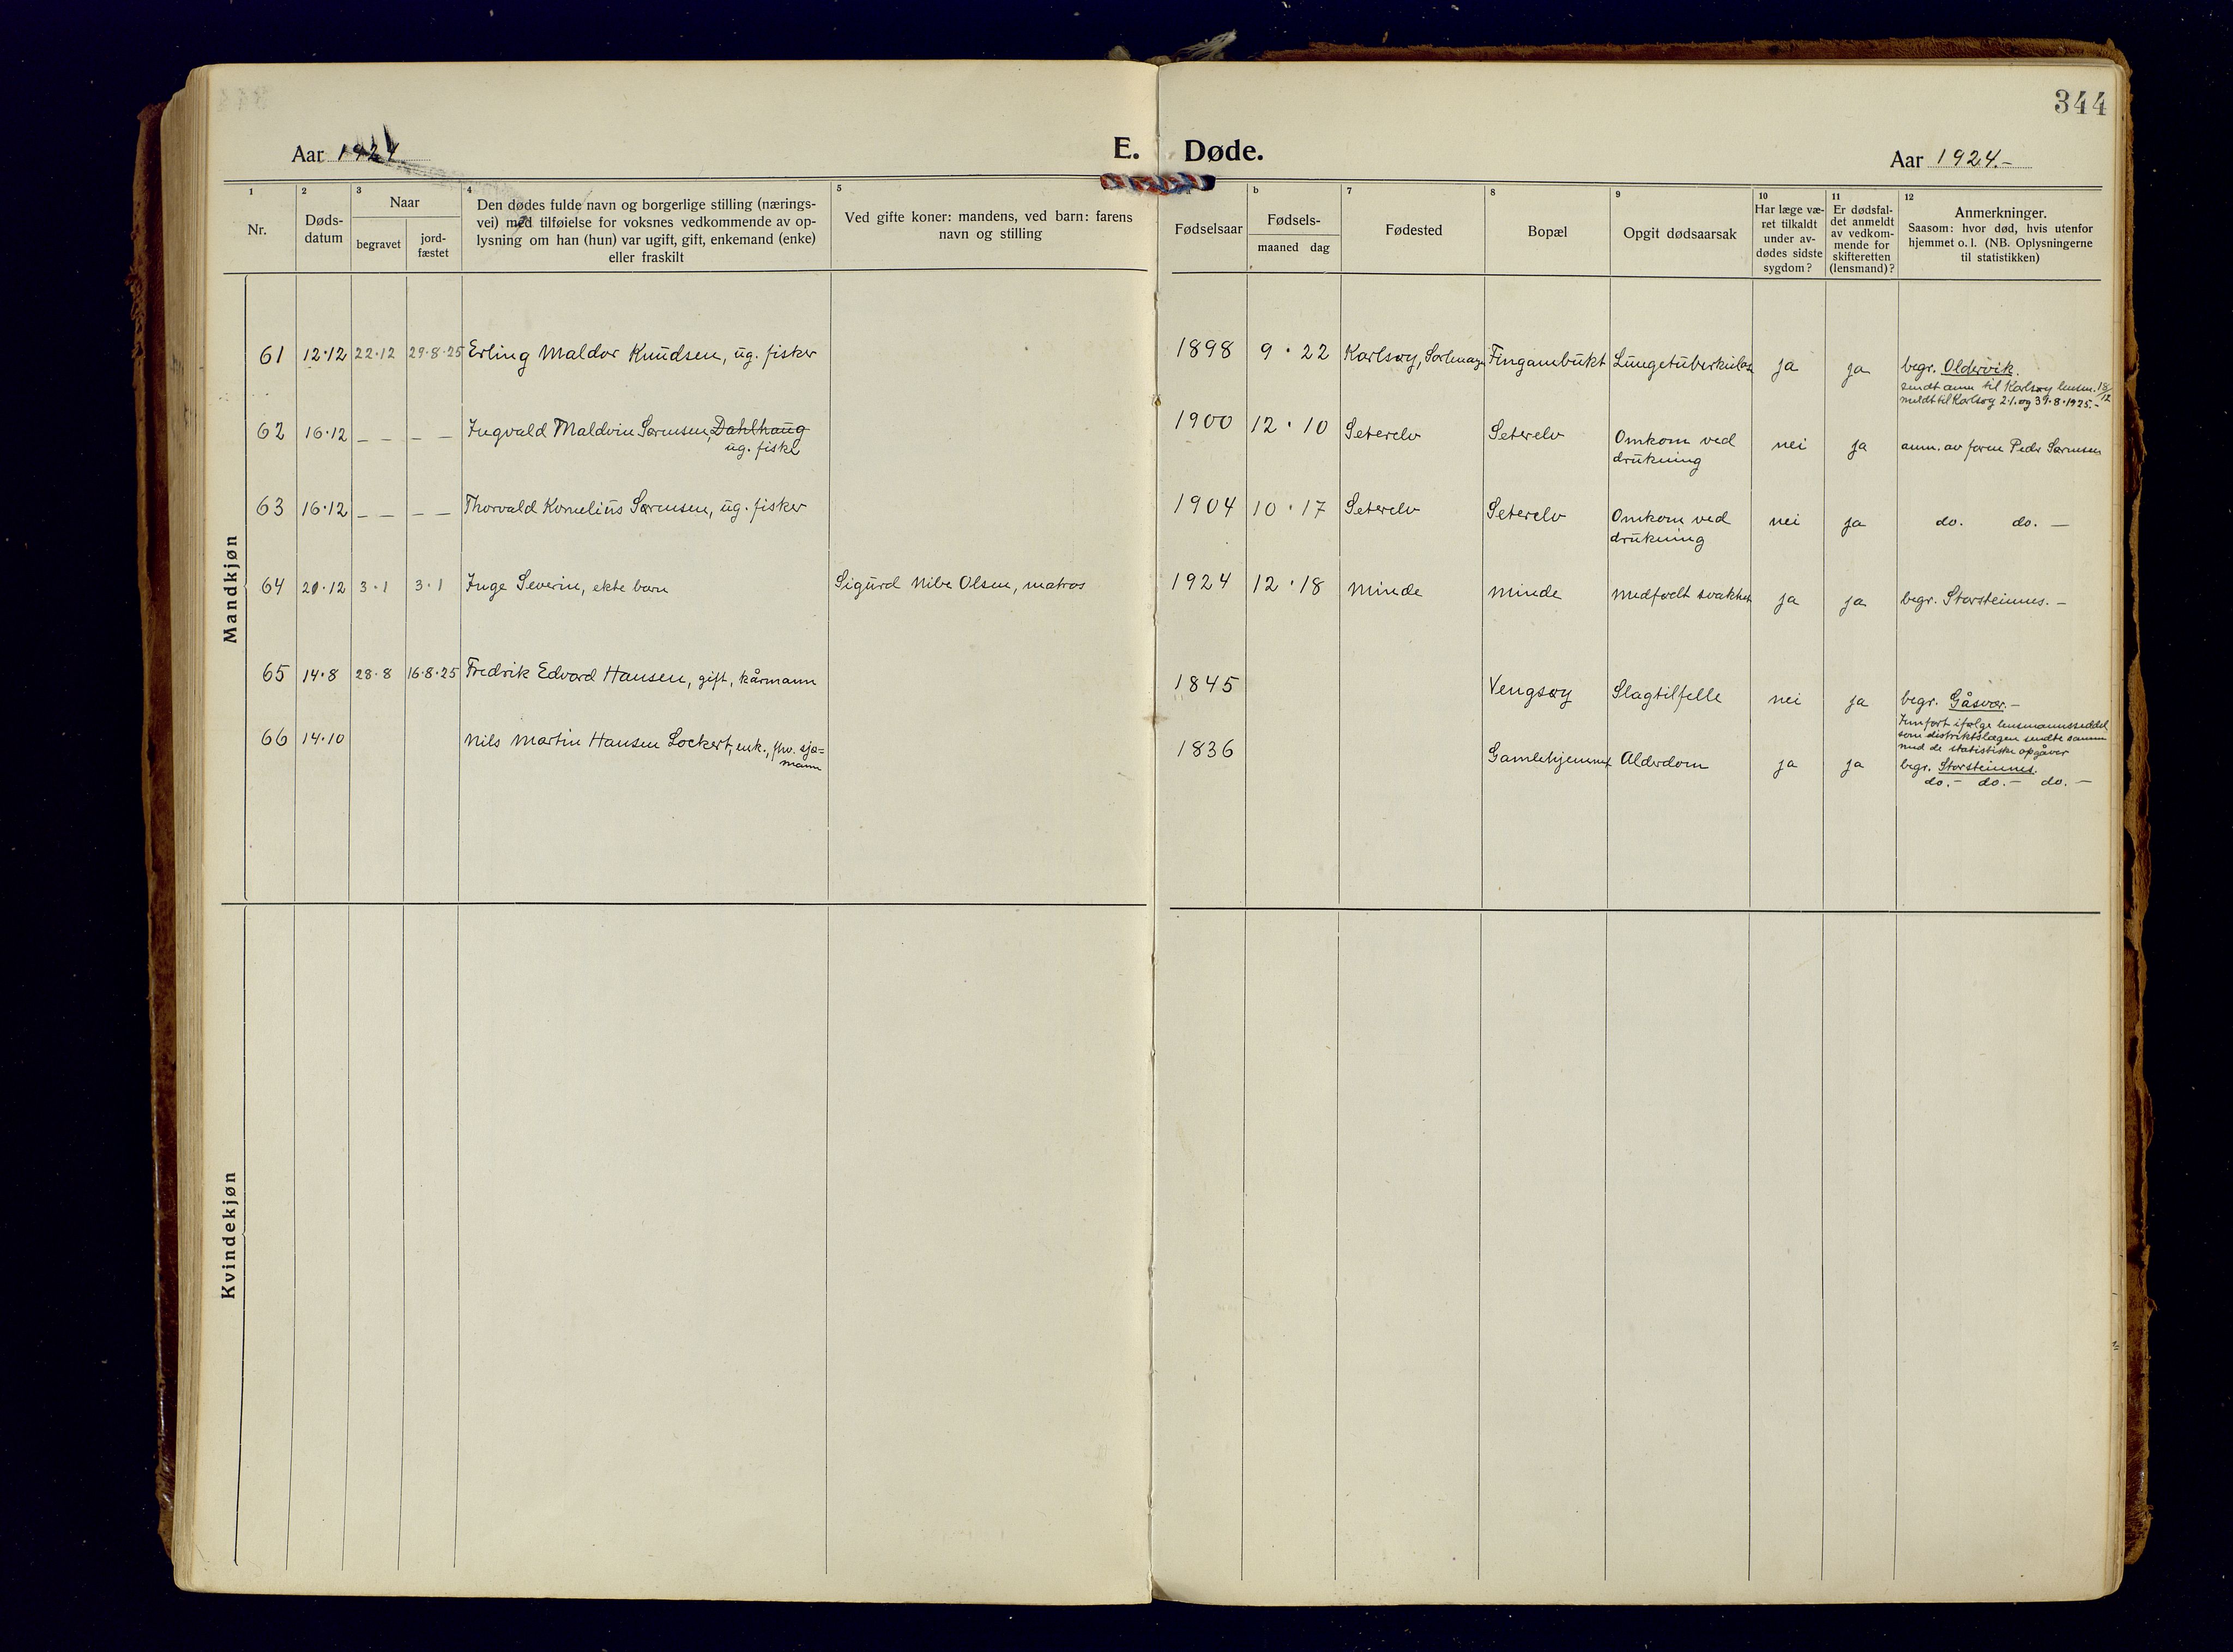 344
Aar 1924
E. Døde.
Aar 1924.-
1 2 3 4 5 b 7 8 9 10 11 12
Nr.
Døds-
datum
Naar
begravet
jord-
fæstet
Den dødes fulde navn og borgerlige stilling (nærings-
vei) med tilføielse for voksnes vedkommende av op-
lysning om han (hun) var ugift, gift, enkemand (enke)
eller fraskilt
Ved gifte koner: mandens, ved barn: farens
navn og stilling
Fødselsaar
Fødsels-
maaned dag
Fødested
Bopæl
Opgit dødsaarsak
Har læge væ-
ret tilkaldt
under av-
dødes sidste
sygdom?
Er dødsfal-
det anmeldt
av vedkom-
mende for
skifteretten
(lensmand)?
Anmerkninger.
Saasom: hvor død, hvis utenfor
hjemmet o. l. (NB. Oplysningerne
til statistikken)
Mandkjøn
61 12·12 22·12 29·8·25 Erling Maldor Knudsen, ug. fisker 1898 9·22 Karlsøy, Fingambukt Lungetuberkulose ja ja begr. Oldervik.
sendt anm til Karlsøy lensm. 18/12
meldt til Karlsøy 2.1. og 31·8·1925.-
62 16·12 _ _ _ _ Ingvald Maldvin Sørensen, Dahlhaug 1900 12·10 Seterelv Seterelv Omkom ved nei ja anm. av faren Peder Sørensen
ug. fisker drukning
63 16·12 _ _ _ _ Thorvald Kornelius Sørensen, ug. fisker 1904 10·17 Seterelv Seterelv Omkom ved nei ja do. do. —
drukning
64 20·12 3·1 3·1 Inge Severin, ekte barn Sigurd Nibe Olsen, matros 1924 12·18 Minde Minde Medfødt svakhet ja ja begr. Storsteinnes. -
65 14·8 28·8 16·8·25 Fredrik Edvard Hansen, gift, kårmann 1845 Vengsøy Slagtilfelle nei ja begr. Gåsvær. -
Innført ifølge lensmannsseddel
som distriktslægen sendte sammen
med de statistiske opgåver
66 14·10 Nils Martin Hansen Lockert, enk., fhv. sjø- 1836 Gamlehjemmet Alderdom ja ja begr. Storsteinnes.
mann do.- do.- do. —
Kvindekjøn